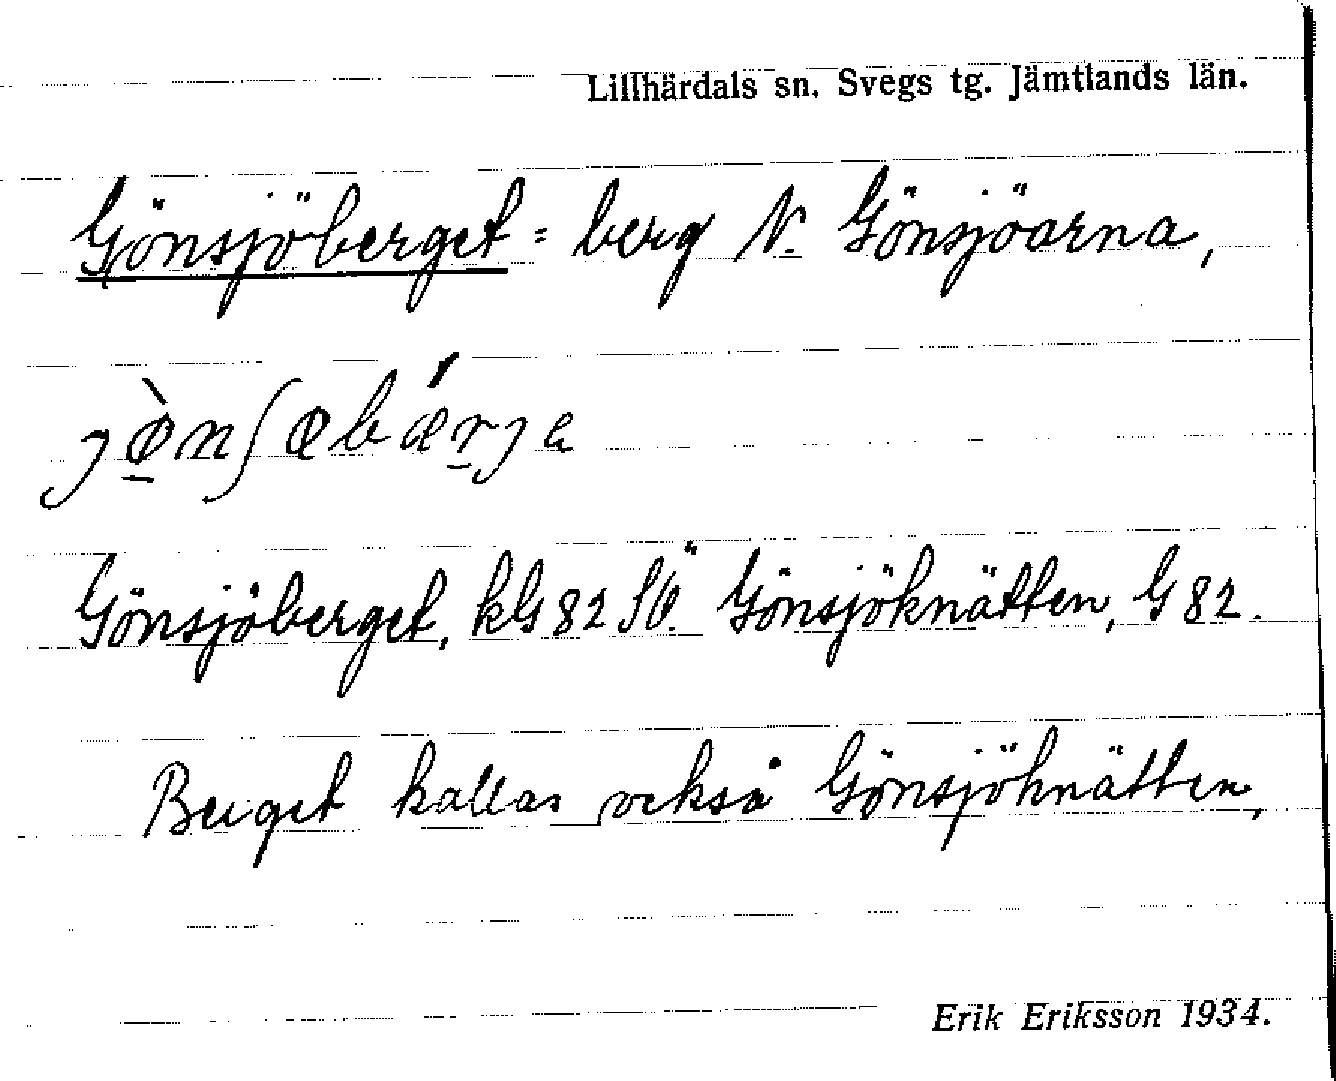 Lillhärdals sn. Svegs tg. Jämtlands län.
Gönsjöberget = berg N. Gönsjöarna,
Gönsjöberget, kG 82 SÖ. Gönsjöknätten, G 82.
Berget kallas också Gönsjöknätten,
Erik Eriksson 1934.